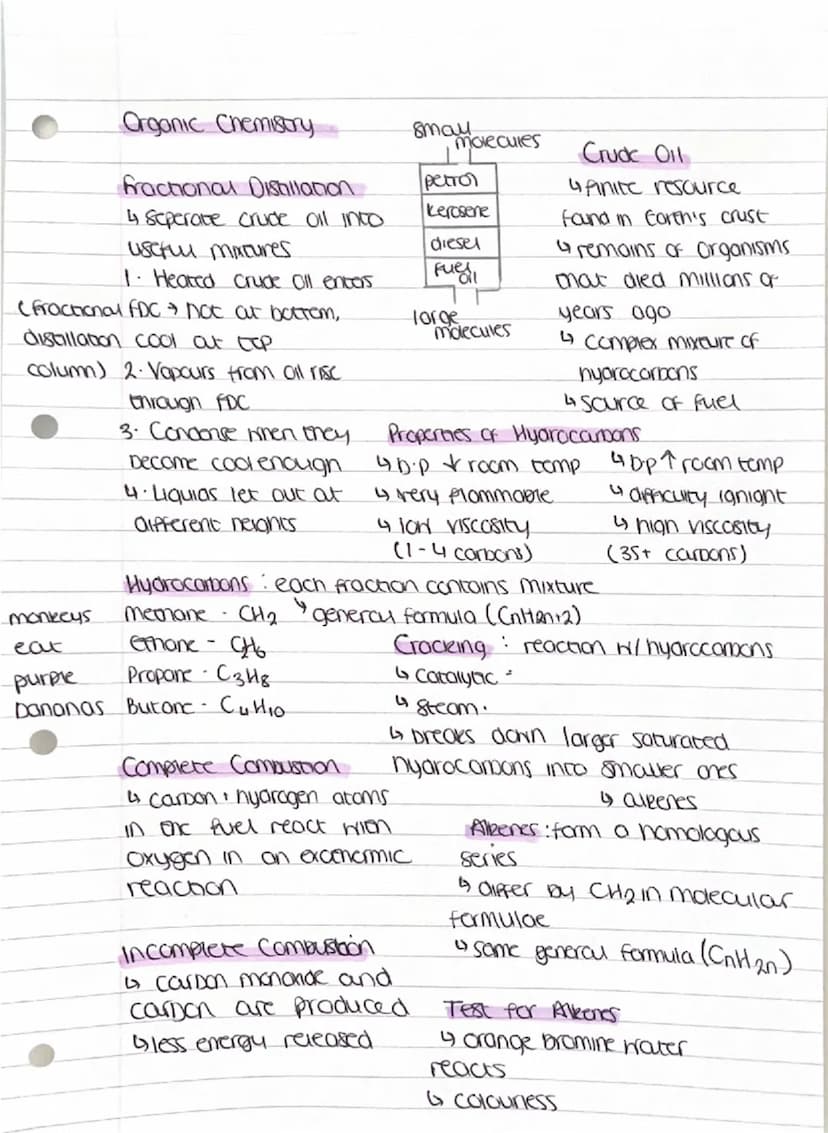 Organic Chemistry
Fractional Distillation
↳ Seperate crude oil into
useful mixtures
1. Heated crude oil enters
(fractional FDC → hot at bottom,
distillation cool at top
column) 2. Vapours from oil rise
through FDC
3. Condense when they
become cool enough
4. Liquids let out at
different heights
small
molecules
petrol
kerosene
diesel
fuel
oil
large
molecules
Crude Oil
↳ finite resource
found in Earth's crust
↳ remains of organisms
that died millions of
years ago
↳ complex mixture of
hydrocarbons
↳ source of fuel
Properties of Hydrocarbons
↳ b.p ↓ room temp
↳ very flammable
↳ low viscosity
(1-4 carbons)
↳ bp ↑ room temp
↳ difficulty
↳ high viscosity
(35+ carbons)
Hydrocarbons : each fraction contains mixture
↳ general formula (CnH2n+2)
monkeys methane - CH2
eat ethane - CH6
purple Propane - C3H8
bananas Butane - C4H10
Cracking : reaction w/ hydrocarbons
↳ Catalytic -
↳ Steam.
↳ breaks down larger saturated
hydrocarbons into smaller ones
↳ alkenes
Complete Combustion
↳ carbon + hydrogen atoms
in the fuel react with
oxygen in an exothermic
reaction
Alkenes : form a homologous
series
↳ differ by CH2 in molecular
formulae
↳ same general formula (CnH2n)
Incomplete Combustion
↳ carbon monoxide and
carbon are produced
↳ less energy released
Test for Alkenes
↳ orange bromine water
reacts
↳ colourless